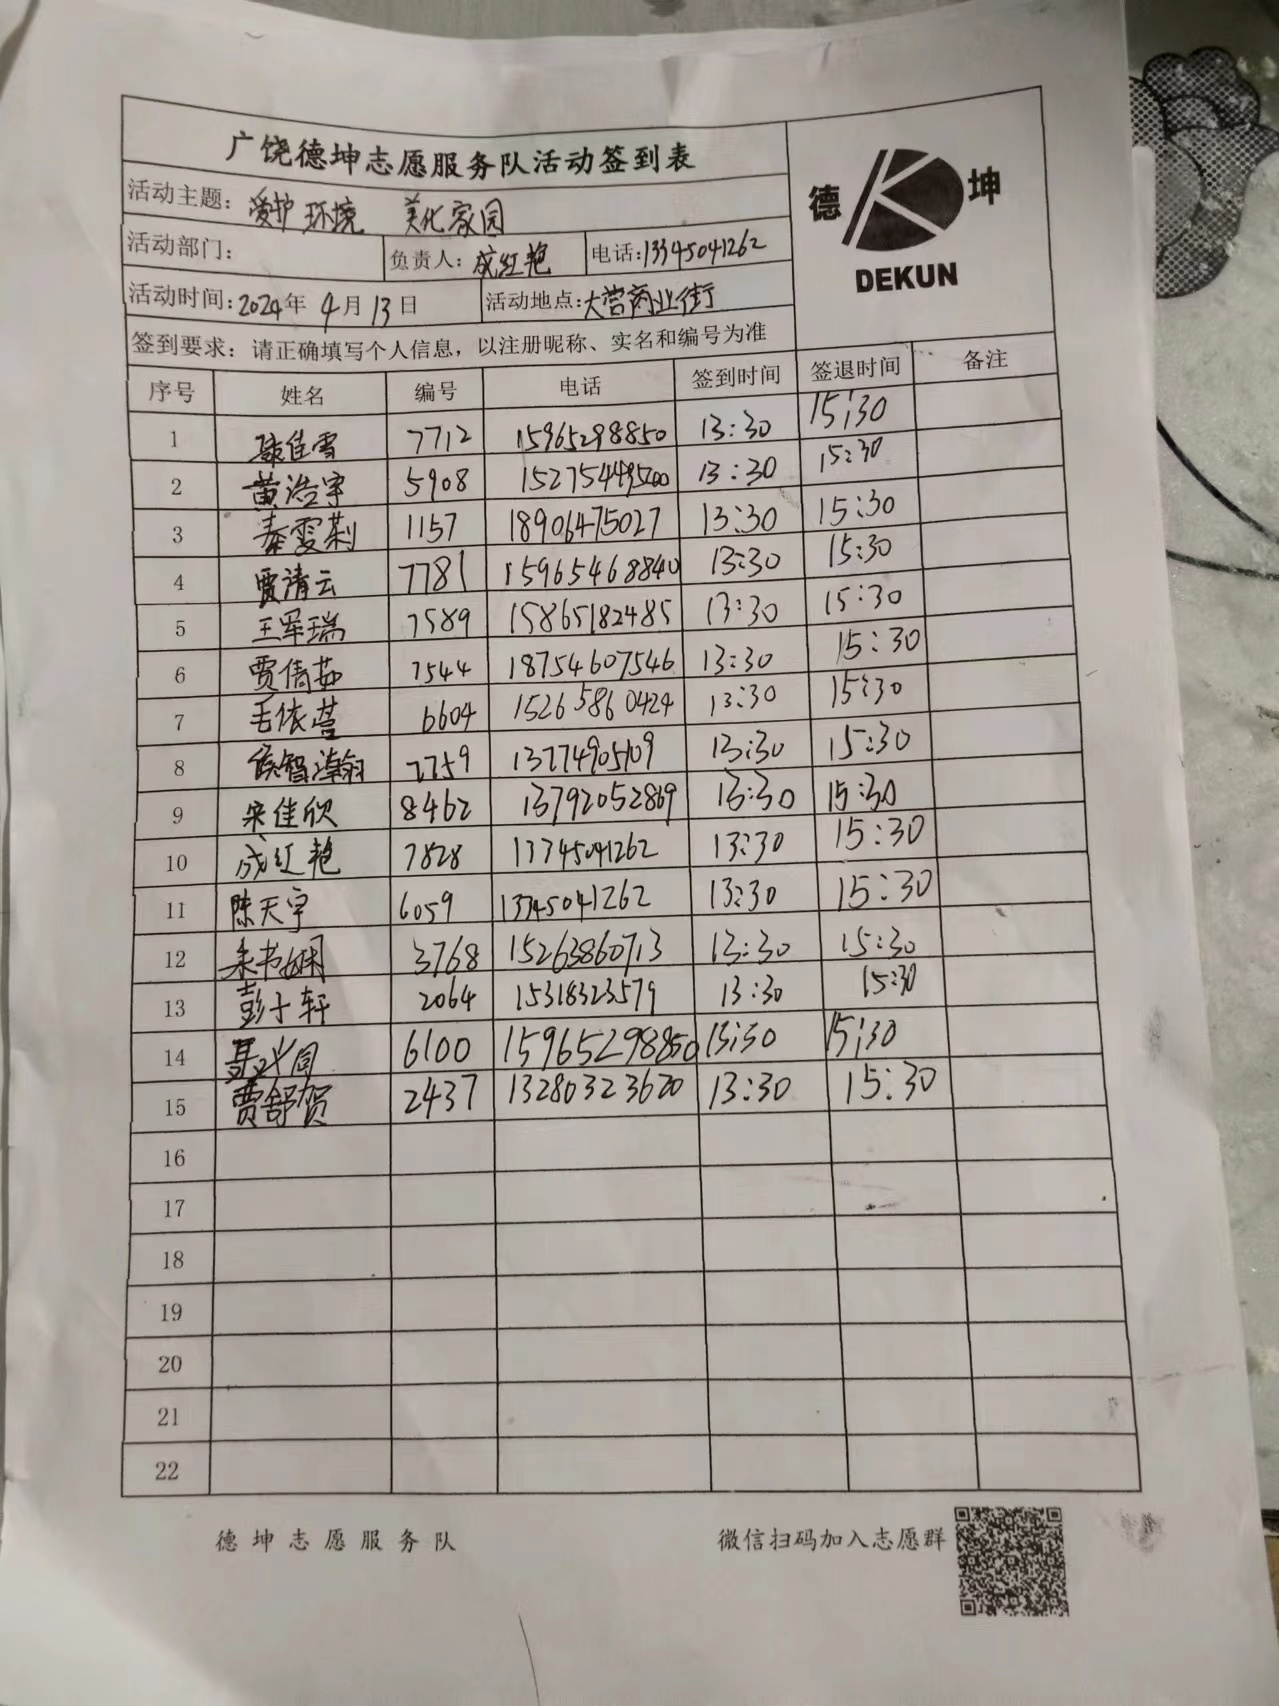 广饶德坤志愿服务队活动签到表
德 坤
DEKUN
活动主题：爱护环境 美化家园
活动部门： 负责人：成红艳 电话：13345041262
活动时间：2024年4月13日 活动地点：大营商业街
签到要求：请正确填写个人信息，以注册昵称、实名和编号为准
序号 姓名 编号 电话 签到时间 签退时间 备注
1 佳雪 7712 15965298850 13:30 15:30
2 黄浩宇 5908 13:30 15:30
3 秦雯莉 1157 18906475027 13:30 15:30
4 贾清云 7781 15965468840 13:30 15:30
5 王军瑞 7589 15865182485 13:30 15:30
6 贾倩茹 7544 18754607546 13:30 15:30
7 毛依萱 6604 15265860424 13:30 15:30
8 侯智瀚 7759 13:30 15:30
9 宋佳欣 8462 13792052869 13:30 15:30
10 成红艳 7828 13:30 15:30
11 陈天宇 6059 13:30 15:30
12 书娴 3768 15263860713 13:30 15:30
13 彭子轩 2064 15318323579 13:30 15:30
14 6100 15965298850 13:30 15:30
15 贾舒贺 2437 13280323620 13:30 15:30
16
17
18
19
20
21
22
德坤志愿服务队 微信扫码加入志愿群